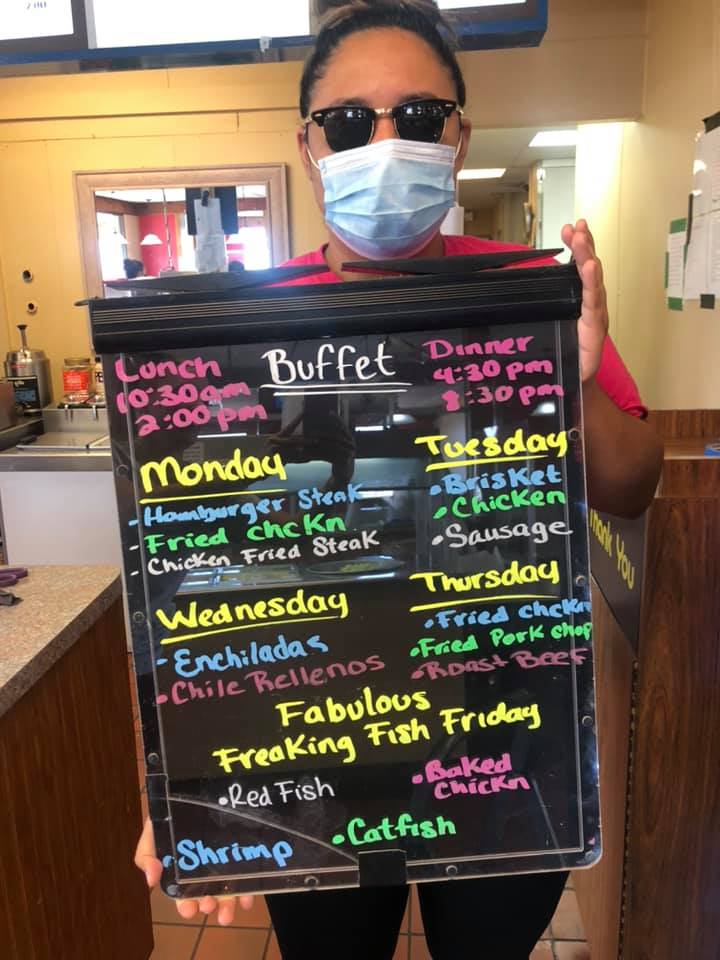 Lunch
10:30am
2:00pm
Buffet
Dinner
4:30pm
8:30pm
Monday
- Hamburger Steak
- Fried chcKn
- Chicken Fried Steak
Tuesday
• Brisket
• Chicken
• Sausage
Wednesday
- Enchiladas
• Chile Rellenos
Thursday
• Fried chcken
• Fried Pork chop
• Roast Beef
Fabulous
Freaking Fish Friday
• Red Fish
• Baked
Chickn
• Catfish
• Shrimp
Thank You